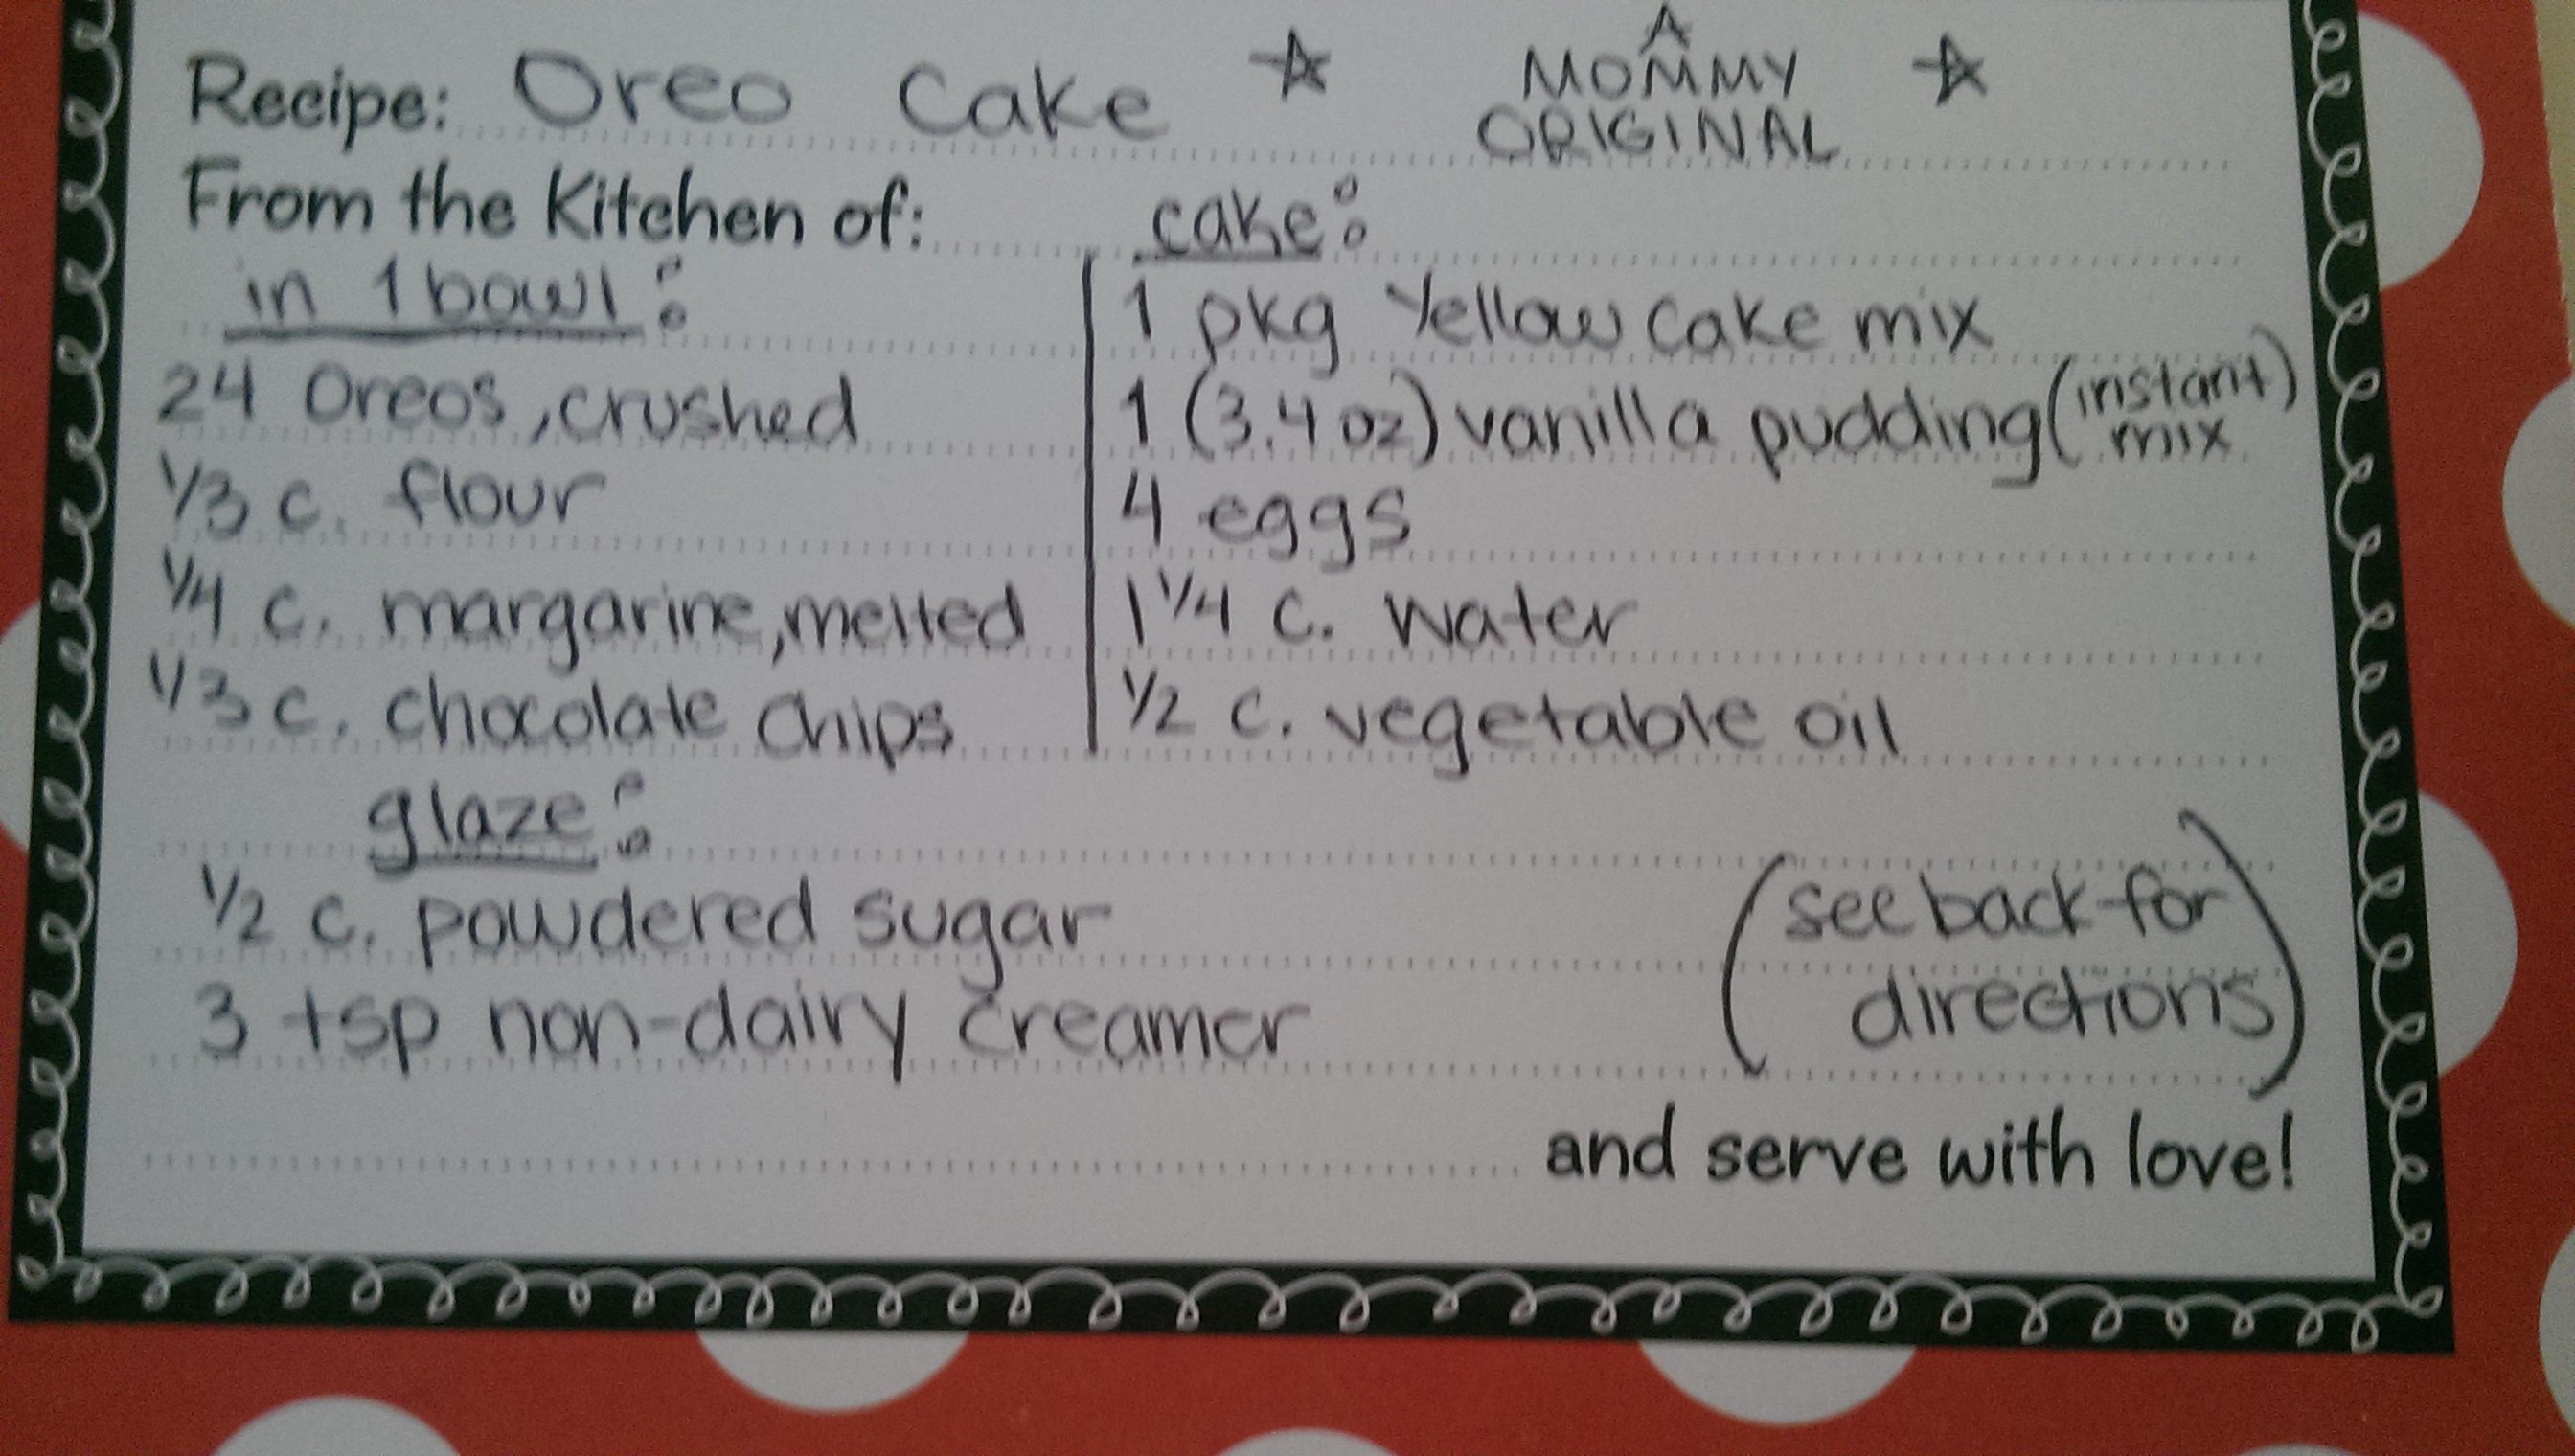 Recipe: Oreo Cake ☆ A MOMMY ☆
ORIGINAL
From the Kitchen of:
in 1 bowl:
24 Oreos, crushed
1/3 c. flour
1/4 c. margarine, melted
1/3 c. chocolate chips
cake:
1 pkg Yellow Cake mix
1 (3.4 oz) vanilla pudding (instant mix)
4 eggs
1 1/4 c. water
1/2 c. vegetable oil
glaze:
1/2 c. powdered sugar
3 tsp non-dairy creamer
(see back for
directions)
and serve with love!